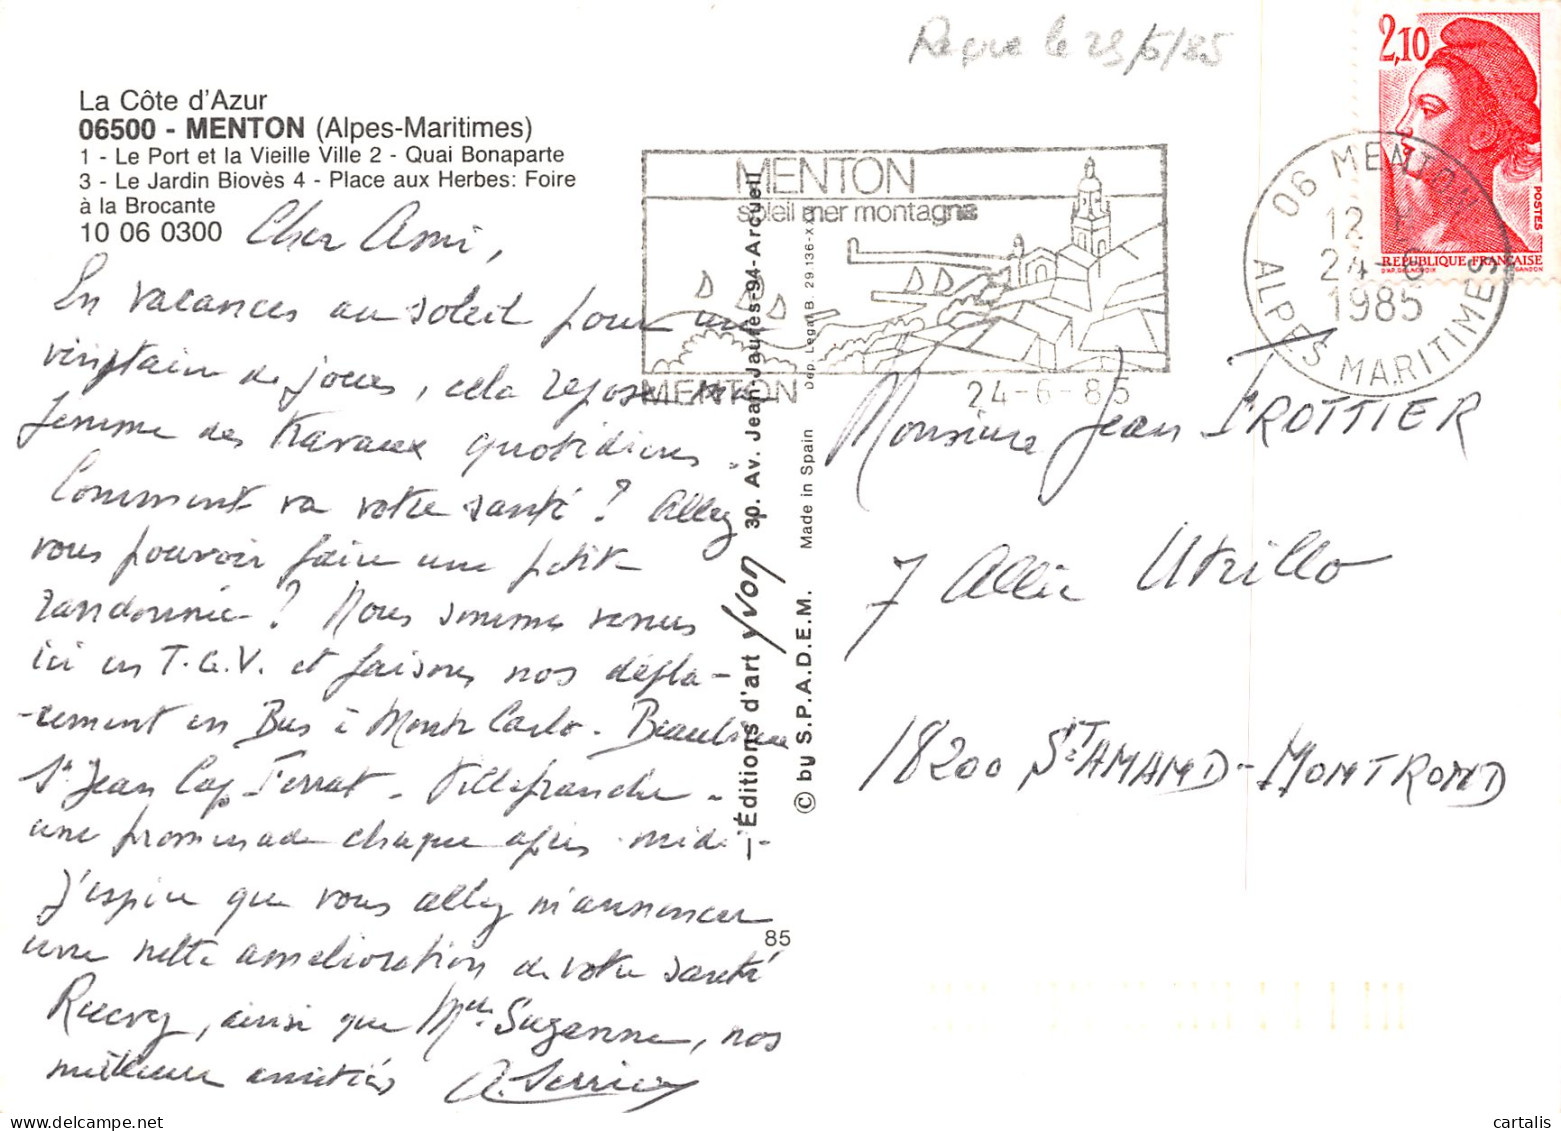 Reçue le 29/6/85
2,10
La Côte d'Azur
06500 - MENTON (Alpes-Maritimes)
1 - Le Port et la Vieille Ville 2 - Quai Bonaparte
3 - Le Jardin Biovès 4 - Place aux Herbes: Foire
à la Brocante
10 06 0300
MENTON
soleil mer montagne
MENTON
24-6-85
06 MENTON
12 H
24-6
1985
ALPES MARITIMES
POSTES
REPUBLIQUE FRANÇAISE
D'AP. DELACROIX GANDON
Cher Ami,
En vacances au soleil pour une
vingtaine de jours, cela repose ma
femme des travaux quotidiens.
Comment va votre santé? Allez
vous pouvoir faire une petite
randonnée? Nous sommes venus
ici en T.G.V. et faisons nos dépla-
-cement en Bus à Monte Carlo. Beaulieu
St Jean Cap Ferrat - Villefranche -
une promenade chaque après midi -
J'espère que vous allez m'annoncer
une nette amélioration de votre santé
Recevez, ainsi que Mlle Suzanne, nos
meilleures amitiés
L'Éditions d'art Yvon 30. Av. Jean-Jaurès-94-Arcueil
© by S.P.A.D.E.M. Made in Spain Dép. Legal B. 29.136-X
85
Monsieur Jean TROTTIER
7 Allée Utrillo
18200 ST AMAND-MONTROND
cartalis